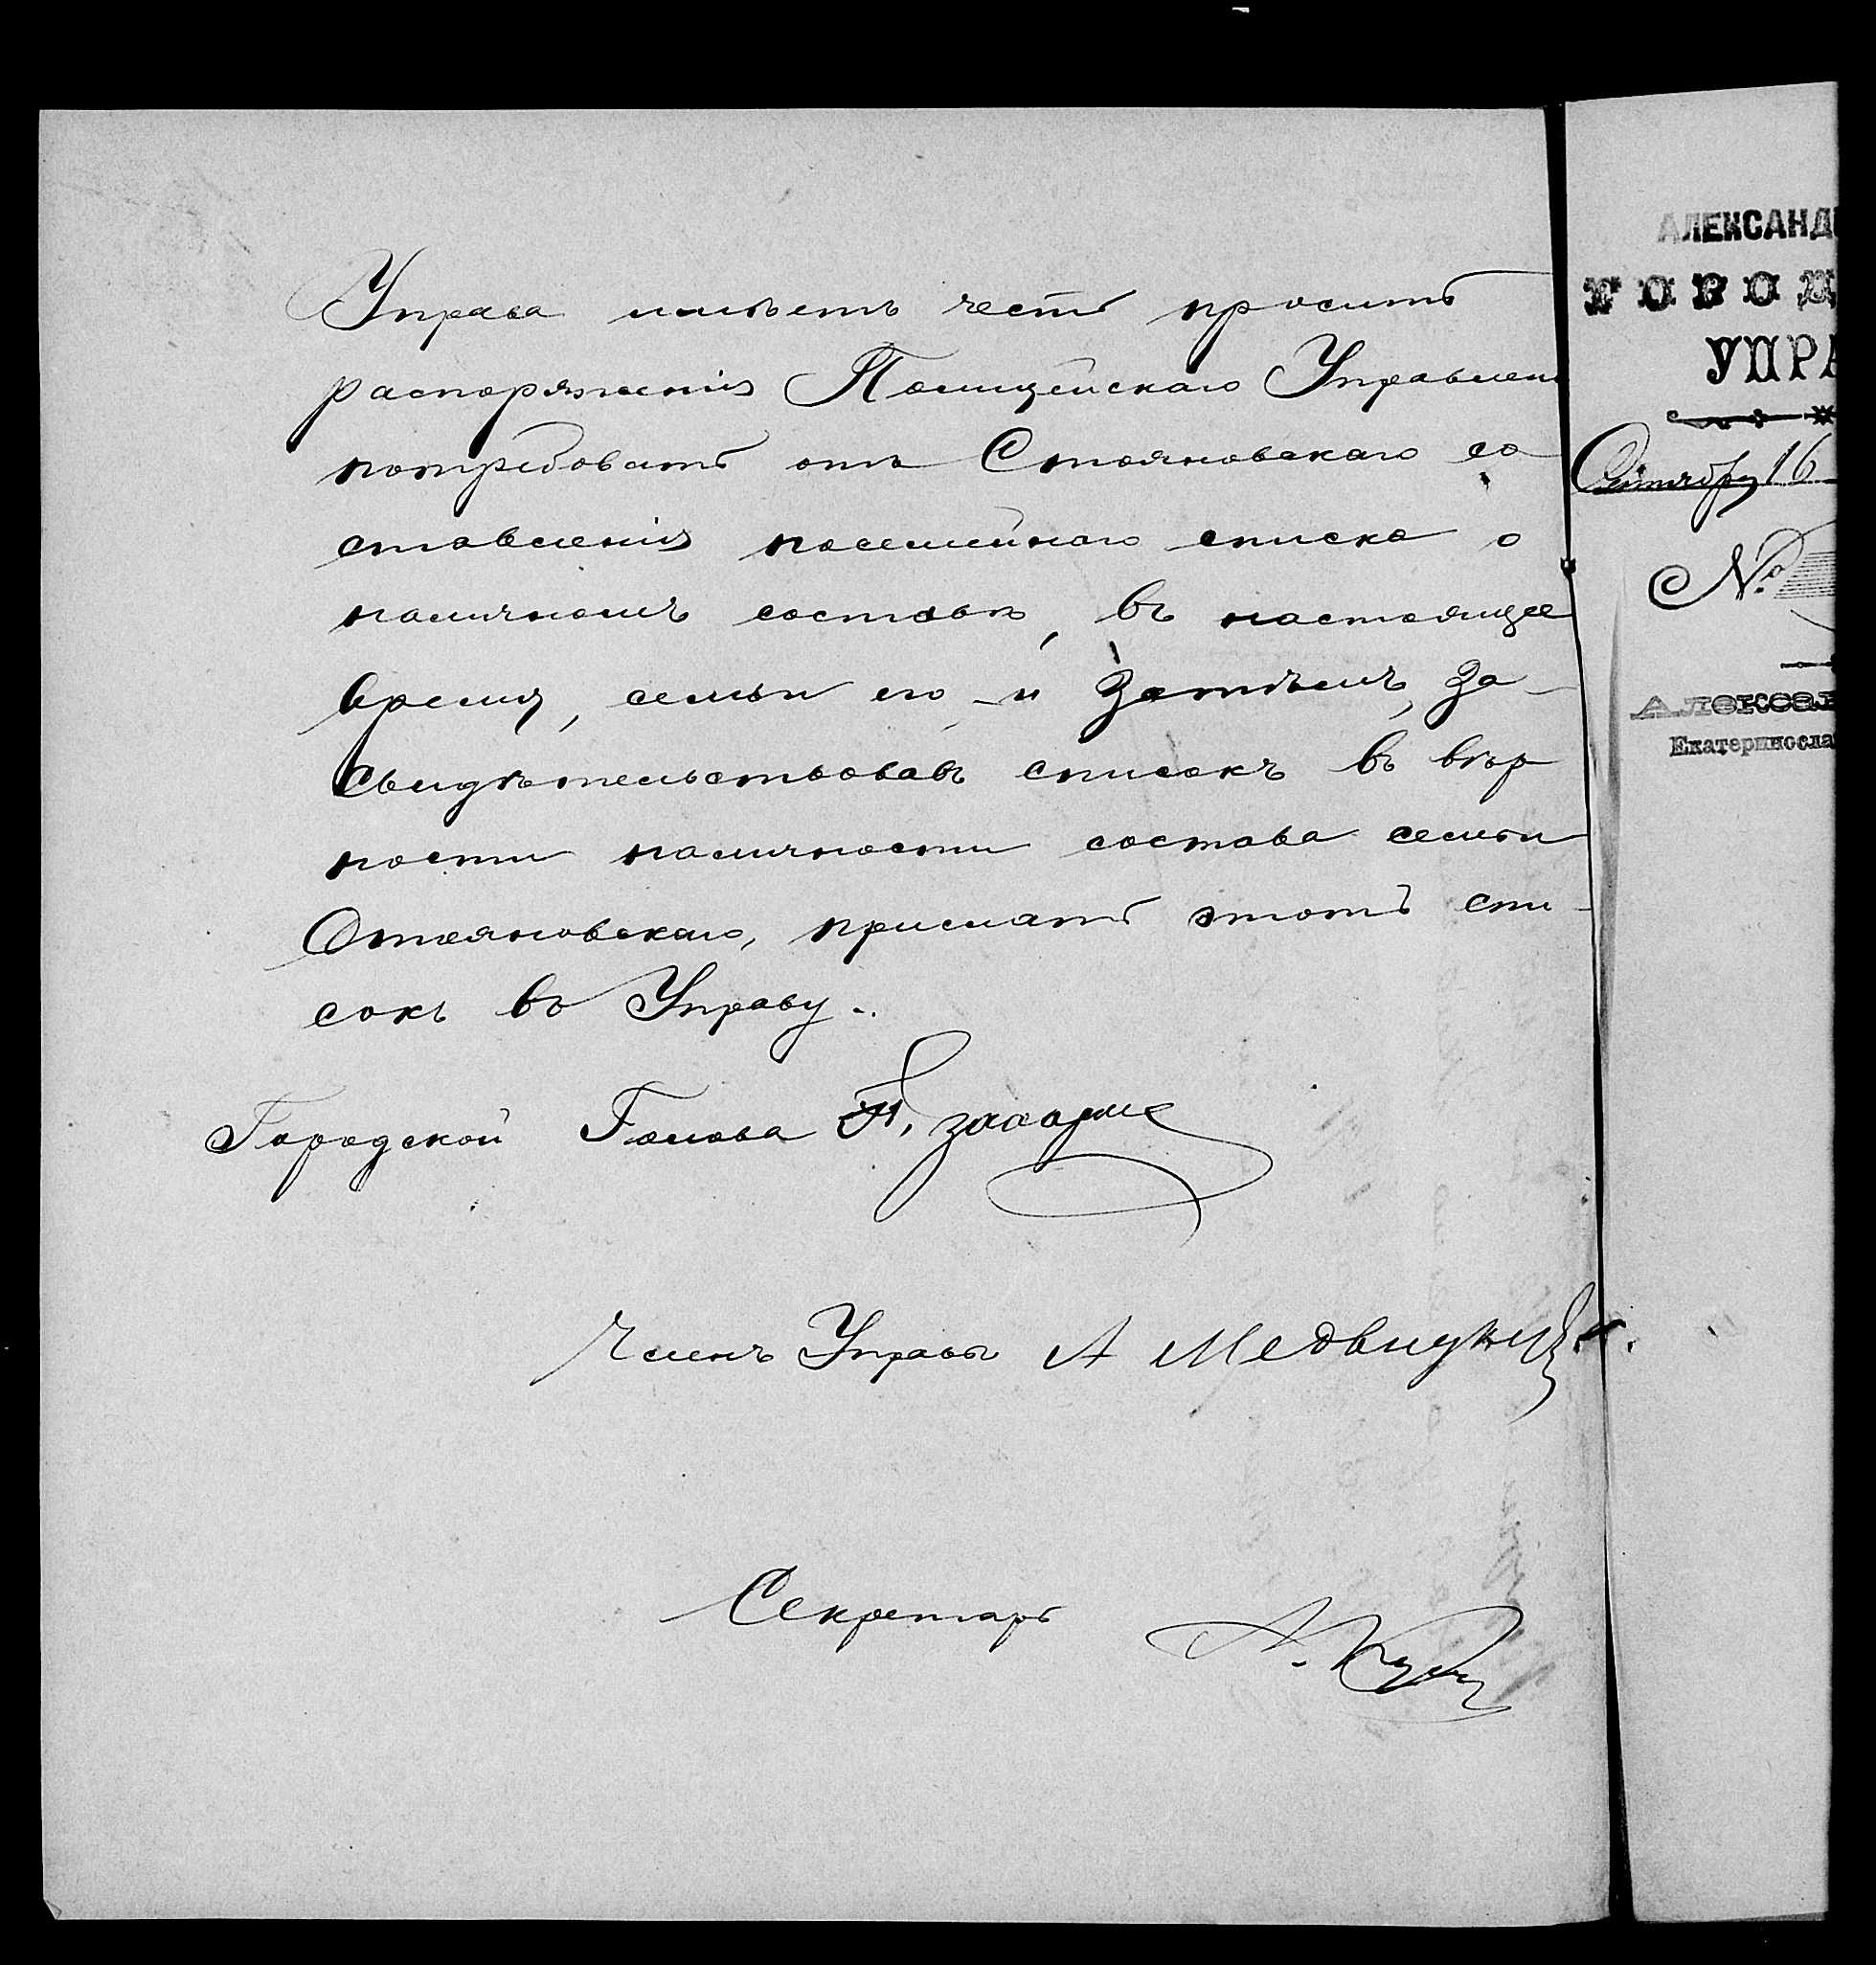 Управа имѣетъ честь просить
распоряженія Полицейскаго Управлен
потребовать отъ Стояновскаго со
ставленія посемейнаго списка о
наличномъ составѣ, въ настоящее
время, семьи его и затѣмъ, за-
свидѣтельствовавъ списокъ въ вѣр
ности наличности состава семьи
Стояновскаго, прислать этотъ спи-
сокъ въ Управу.
Городской Голова Ф. Захарин
Членъ Управы А Медвидкий
Секретарь
АЛЕКСАНД
ГОРОД
УПРА
Сентября 16
№
Алексан
Екатериносла